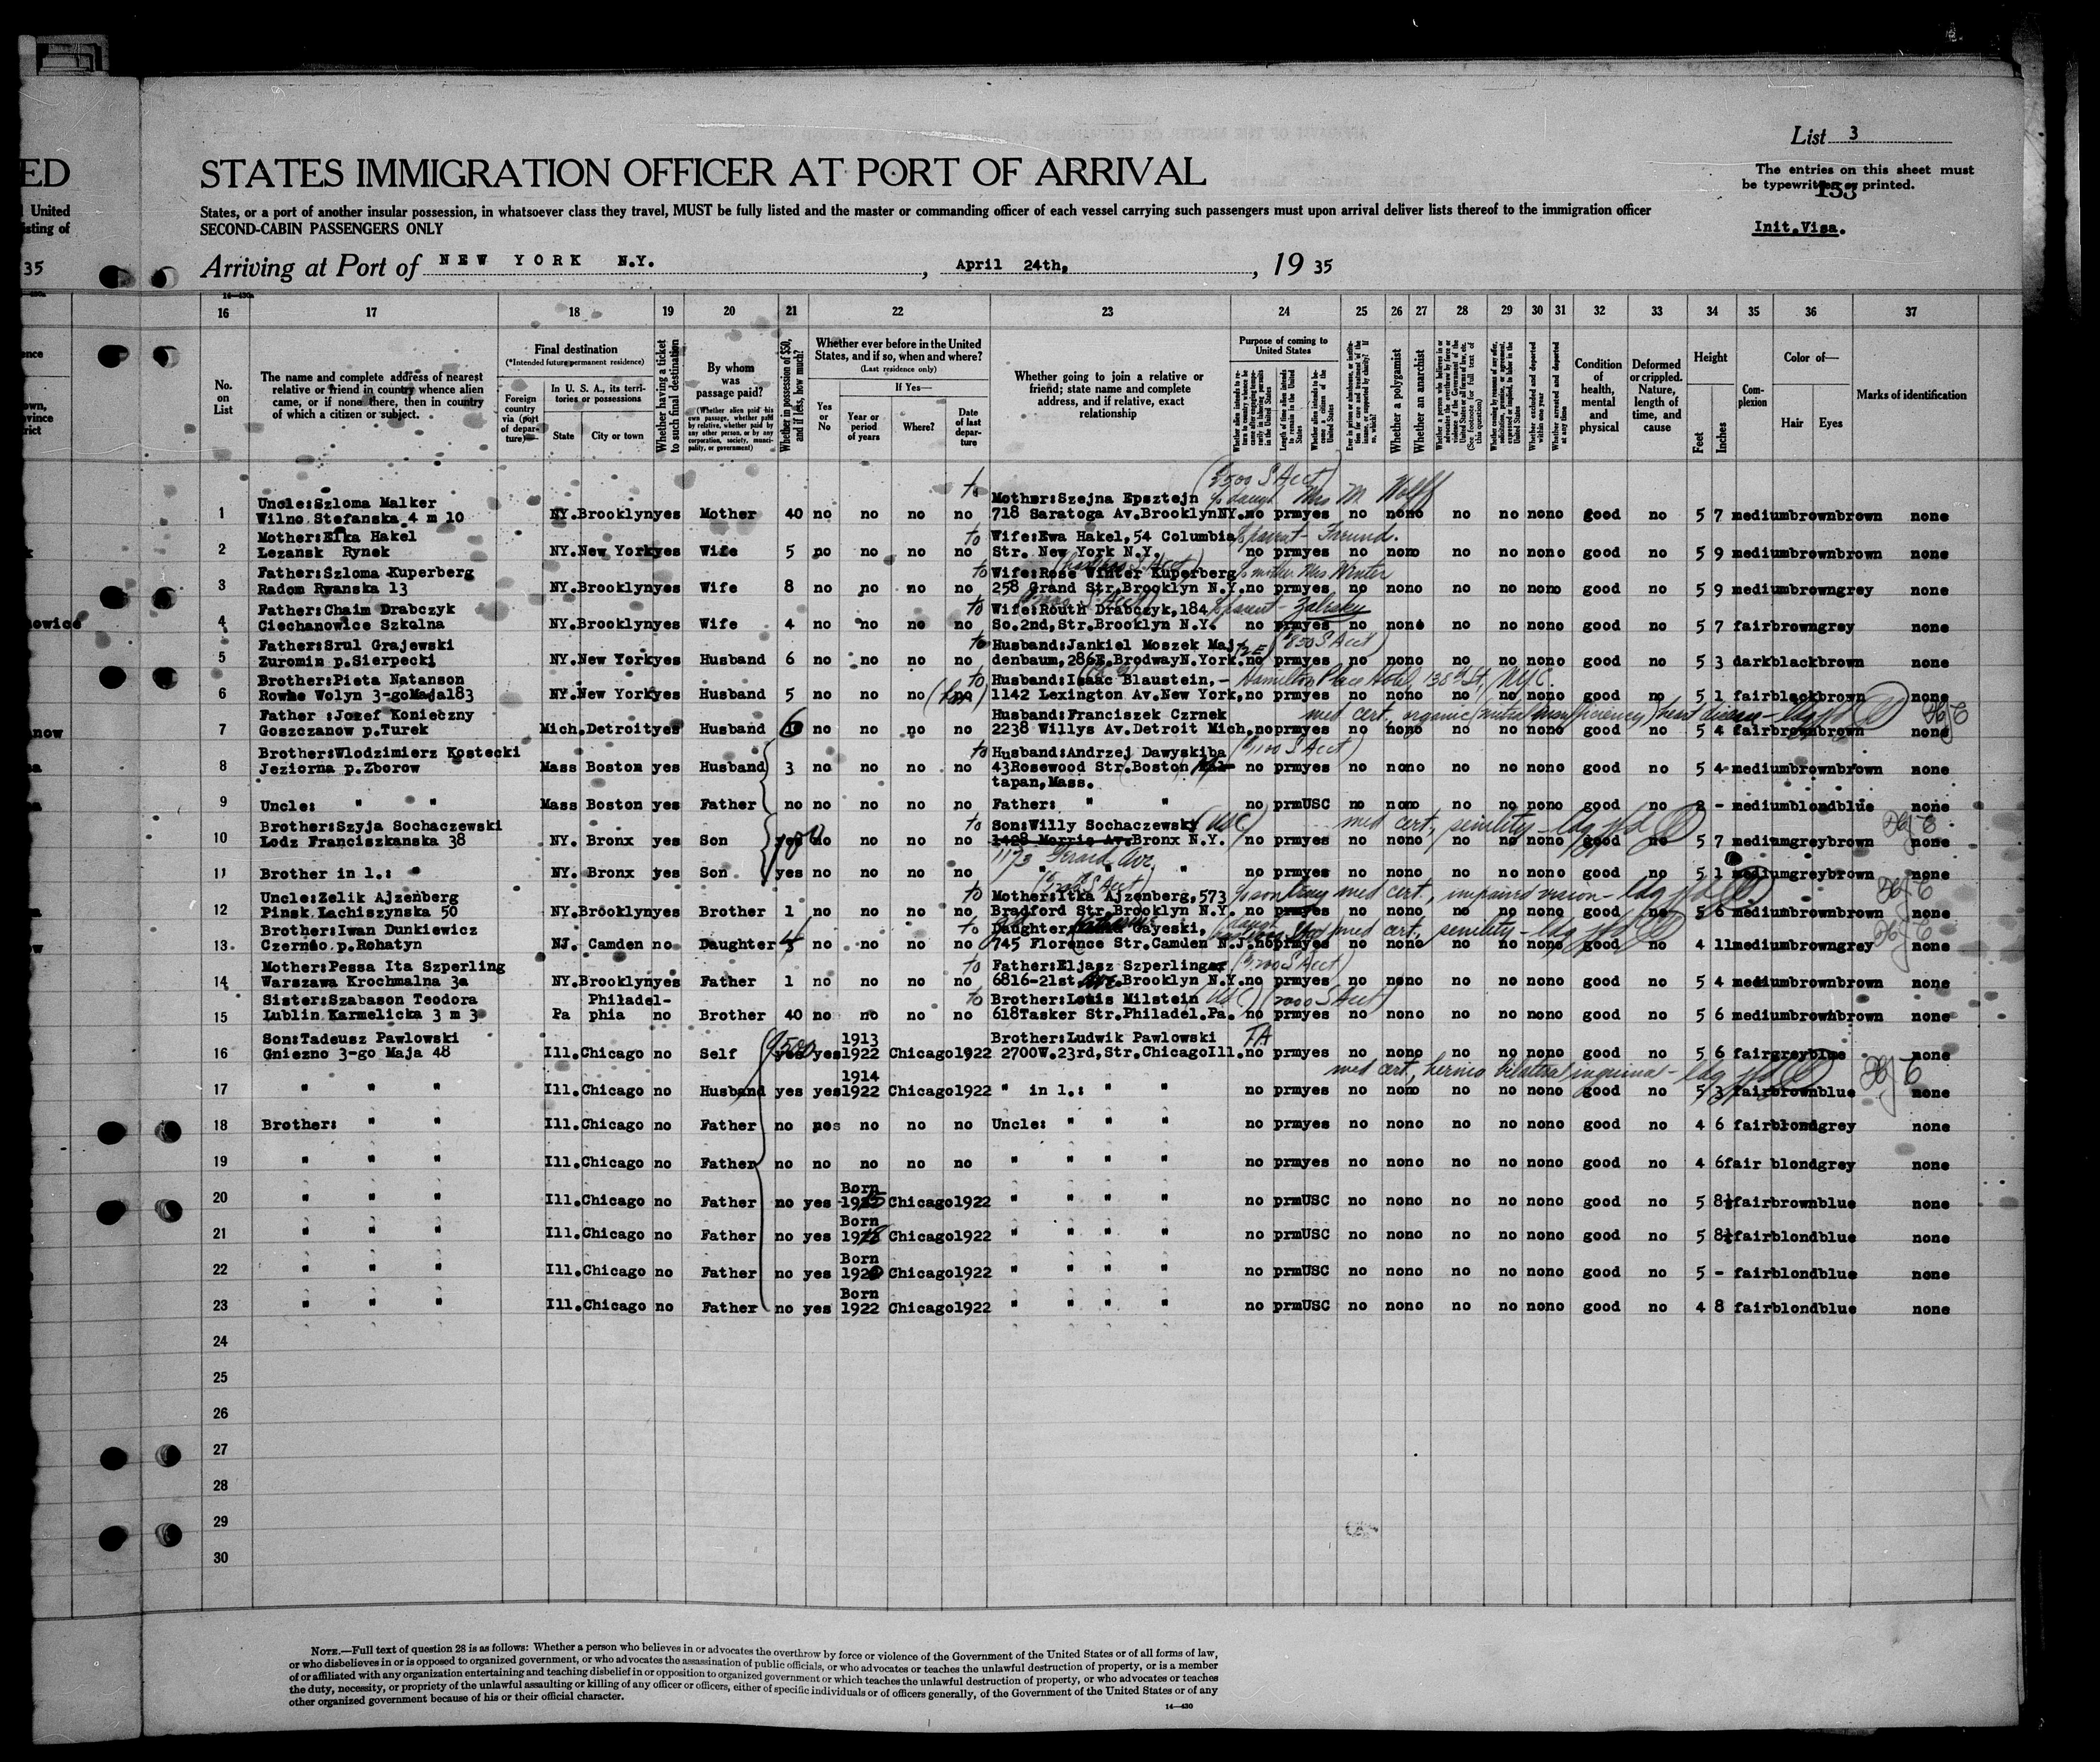 List 3
ED
STATES IMMIGRATION OFFICER AT PORT OF ARRIVAL
The entries on this sheet must
be typewritten or printed.
153
United
isting of
States, or a port of another insular possession, in whatsoever class they travel, MUST be fully listed and the master or commanding officer of each vessel carrying such passengers must upon arrival deliver lists thereof to the immigration officer
SECOND-CABIN PASSENGERS ONLY
Init.Visa.
35
Arriving at Port of NEW YORK N.Y., April 24th, 19 35
16 17 18 19 20 21 22 23 24 25 26 27 28 29 30 31 32 33 34 35 36 37
No. on List
The name and complete address of nearest relative or friend in country whence alien came, or if none there, then in country of which a citizen or subject.
Final destination
(*Intended future permanent residence)
Foreign country via (port of departure)
In U. S. A., its territories or possessions
State
City or town
Whether having a ticket to such final destination
By whom was passage paid?
(Whether alien paid his own passage, whether paid by relative, whether paid by any other person, or by any corporation, society, municipality, or government)
Whether in possession of $50, and if less, how much?
Whether ever before in the United States, and if so, when and where?
(Last residence only)
Yes or No
If Yes—
Year or period of years
Where?
Date of last departure
Whether going to join a relative or friend; state name and complete address, and if relative, exact relationship
Purpose of coming to United States
Whether a polygamist
Whether an anarchist
Condition of health, mental and physical
Deformed or crippled. Nature, length of time, and cause
Height
Feet
Inches
Complexion
Color of—
Hair
Eyes
Marks of identification
($500 S Acct)
Uncle:Szloma Malker to Mother:Szejna Epsztejn Mrs M Wolff
1 Wilno Stefanska 4 m 10 NY.Brooklyn yes Mother 40 no no no no 718 Saratoga Av.BrooklynNY. no prm yes no no no no no no no good no 5 7 medium brown brown none
Mother:Elka Hakel to Wife:Ewa Hakel,54 Columbia Freund.
2 Lezansk Rynek NY.New York yes Wife 5 no no no no Str. New York N.Y. no prm yes no no no no no no no good no 5 9 medium brown brown none
Father:Szloma Kuperberg to Wife:Rose Winter Kuperberg mother Mrs Winter
3 Radom Rwanska 13 NY.Brooklyn yes Wife 8 no no no no 258 Grand Str.Brooklyn N.Y. no prm yes no no no no no no no good no 5 9 medium brown grey none
Father:Chaim Drabczyk to Wife:Routh Drabczyk,184 Zalesky
4 Ciechanowice Szkolna NY.Brooklyn yes Wife 4 no no no no So.2nd,Str.Brooklyn N.Y. no prm yes no no no no no no no good no 5 7 fair brown grey none
Father:Srul Grajewski to Husband:Jankiel Moszek Maj- ($850 S Acct)
5 Zuromin p.Sierpecki NY.New York yes Husband 6 no no no no denbaum,286E.BrodwayN.York. no prm yes no no no no no no no good no 5 3 dark black brown none
Brother:Pieta Natanson to Husband:Isaac Blaustein,- Hamilton Place Hotel 138th St, NYC.
6 Rowne Wolyn 3-goMaja183 NY.New York yes Husband 5 no no no no 1142 Lexington Av.New York, no prm yes no no no no no no no good no 5 1 fair black brown none
Father :Jozef Konieczny Husband:Franciszek Czrnek med cert, organic (mitral insufficiency) heart disease
7 Goszczanow p.Turek Mich.Detroit yes Husband 6 no no no no 2238 Willys Av.Detroit Mich. no prm yes no no no no no no no good no 5 4 fair brown brown none
Brother:Wlodzimierz Kostecki to Husband:Andrzej Dawyskiba ($1,100 S Acct)
8 Jeziorna p.Zborow Mass Boston yes Husband 3 no no no no 43Rosewood Str.Boston no prm yes no no no no no no no good no 5 4 medium brown brown none
tapan,Mass.
9 Uncle: " " Mass Boston yes Father no no no no no Father: " " no prm USC no no no no no no no good no 2 - medium blond blue none
Brother:Szyja Sochaczewski to Son:Willy Sochaczewsky (USC) med cert, senility
10 Lodz Franciszkanska 38 NY. Bronx yes Son yes no no no no 1428 Morris Av.Bronx N.Y. no prm yes no no no no no no no good no 5 7 medium grey brown none
1173 Gerard Ave,
11 Brother in l.: " NY. Bronx yes Son yes no no no no " " no prm yes no no no no no no no good no 5 1 medium grey brown none
Uncle:Zelik Ajzenberg to Mother:Itka Ajzenberg,573 med cert, impaired vision
12 Pinsk Lachiszynska 50 NY.Brooklyn yes Brother 1 no no no no Bradford Str.Brooklyn N.Y. no prm yes no no no no no no no good no 5 6 medium brown brown none
Brother:Iwan Dunkiewicz to Daughter Gayeski, med cert, senility
13 Czernio p.Rohatyn NJ. Camden no Daughter no no no no 745 Florence Str.Camden N.J. no prm yes no no no no no no no good no 4 11 medium brown grey none
Mother:Pessa Ita Szperling to Father:Eljasz Szperlinger ($1,200 S Acct)
14 Warszawa Krochmalna 3a NY.Brooklyn yes Father 1 no no no no 6816-21st Ave.Brooklyn N.Y. no prm yes no no no no no no no good no 5 4 medium brown brown none
Sister:Szabason Teodora Philadel- to Brother:Louis Milstein (USC) (2000 S Acct)
15 Lublin Karmelicka 3 m 3 Pa phia no Brother 40 no no no no 618Tasker Str.Philadel.Pa. no prm yes no no no no no no no good no 5 6 medium brown brown none
Son:Tadeusz Pawlowski 1913 Brother:Ludwik Pawlowski TA
16 Gniezno 3-go Maja 48 Ill.Chicago no Self yes yes 1922 Chicago 1922 2700W.23rd,Str.ChicagoIll. no prm yes no no no no no no no good no 5 6 fair grey blue none
1914 med cert, hernia bilateral inguinal
17 " " " Ill.Chicago no Husband yes yes 1922 Chicago 1922 " in l.: " " no prm yes no no no no no no no good no 5 3 fair brown blue none
18 Brother: " " Ill.Chicago no Father no no no no Uncle: " " no prm yes no no no no no no no good no 4 6 fair blond grey none
19 " " " Ill.Chicago no Father no no no no no " " " no prm yes no no no no no no no good no 4 6 fair blond grey none
Born
20 " " " Ill.Chicago no Father no yes Chicago 1922 " " " no prm USC no no no no no no no good no 5 8½ fair brown blue none
Born
21 " " " Ill.Chicago no Father no yes Chicago 1922 " " " no prm USC no no no no no no no good no 5 8½ fair blond blue none
Born
22 " " " Ill.Chicago no Father no yes 1920 Chicago 1922 " " " no prm USC no no no no no no no good no 5 - fair blond blue none
Born
23 " " " Ill.Chicago no Father no yes 1922 Chicago 1922 " " " no prm USC no no no no no no no good no 4 8 fair blond blue none
24
25
26
27
28
29
30
NOTE.—Full text of question 28 is as follows: Whether a person who believes in or advocates the overthrow by force or violence of the Government of the United States or of all forms of law,
or who disbelieves in or is opposed to organized government, or who advocates the assassination of public officials, or who advocates or teaches the unlawful destruction of property, or is a member
of or affiliated with any organization entertaining and teaching disbelief in or opposition to organized government or which teaches the unlawful destruction of property, or who advocates or teaches
the duty, necessity, or propriety of the unlawful assaulting or killing of any officer or officers, either of specific individuals or of officers generally, of the Government of the United States or of any
other organized government because of his or their official character.
14—430